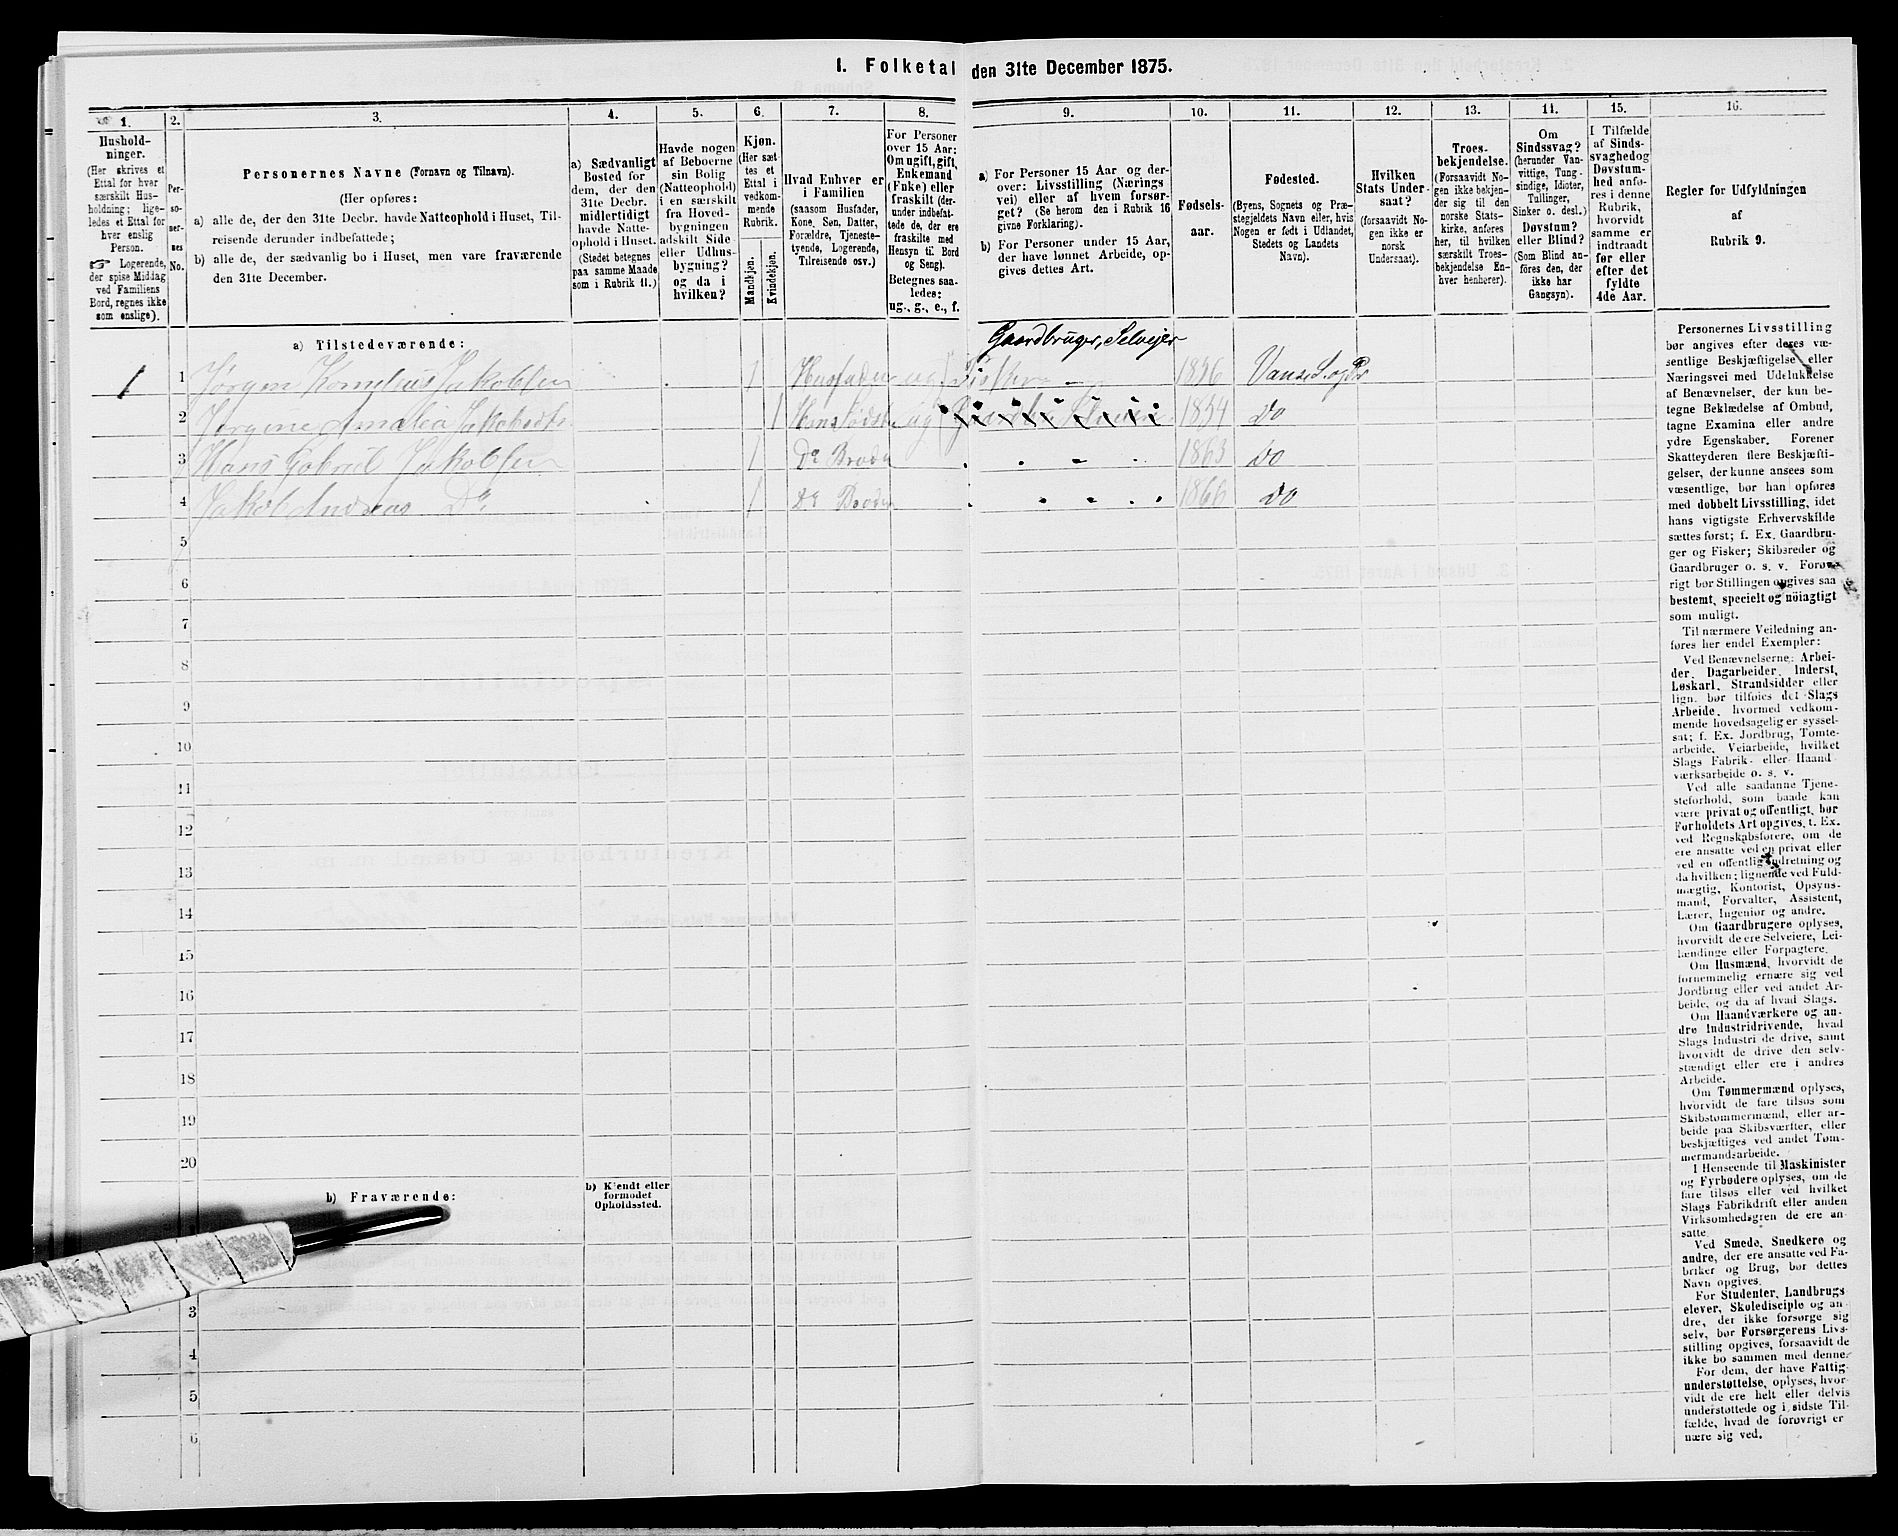 I. Folketal den 31te December 1875.
1. 2. 3. 4. 5. 6. 7. 8. 9. 10. 11. 12. 13. 14. 15. 16.
Hushold-
ninger.
(Her skrives et
Ettal for hver
særskilt Hus-
holdning; lige-
ledes et Ettal for
hver enslig
Person.
☞ Logerende,
der spise Middag
ved Familiens
Bord, regnes ikke
som enslige).
Per-
so-
ner-
nes
No.
Personernes Navne (Fornavn og Tilnavn).
(Her opføres:
a) alle de, der den 31te Decbr. havde Natteophold i Huset, Til-
reisende derunder indbefattede;
b) alle de, der sædvanlig bo i Huset, men vare fraværende
den 31te December.
a) Sædvanligt
Bosted for
dem, der den
31te Decbr.
midlertidigt
havde Natte-
ophold i Huset.
(Stedet betegnes
paa samme Maade
som i Rubrik 11.)
Havde nogen
af Beboerne
sin Bolig
(Natteophold)
i en særskilt
fra Hoved-
bygningen
adskilt Side-
eller Udhus-
bygning?
og da i
hvilken?
Kjøn.
(Her sæt-
tes et
Ettal i
vedkom-
mende
Rubrik.)
Mandkjøn.
Kvindekjøn.
Hvad Enhver er
i Familien
(saasom Husfader,
Kone, Søn, Datter,
Forældre, Tjeneste-
tyende, Logerende,
Tilreisende osv.)
For Personer
over 15 Aar:
Om ugift, gift,
Enkemand
(Enke) eller
fraskilt (der-
under indbefat-
tede de, der ere
fraskilte med
Hensyn til Bord
og Seng).
Betegnes saa-
ledes:
ug., g., e., f.
a) For Personer 15 Aar og der-
over: Livsstilling (Nærings
vei) eller af hvem forsør-
get? (Se herom den i Rubrik 16
givne Forklaring).
b) For Personer under 15 Aar,
der have lønnet Arbeide, op-
gives dettes Art.
Fødsels-
aar.
Fødested.
(Byens, Sognets og Præ-
stegjeldets Navn eller, hvis
Nogen er født i Udlandet,
Stedets og Landets
Navn).
Hvilken
Stats Under-
saat?
(forsaavidt No-
gen ikke er
norsk
Undersaat).
Troes-
bekjendelse.
(Forsaavidt No-
gen ikke bekjen-
der sig til den
norske Stats-
kirke, anføres
her, til hvilken
særskilt Troes-
bekjendelse En-
hver henhører).
Om
Sindssvag?
(herunder Van-
vittige, Tung-
sindige, Idioter,
Tullinger,
Sinker o. desl.)
Døvstum?
eller Blind?
(Som Blind an-
føres den, der
ikke har
Gangsyn).
I Tilfælde
af Sinds-
svaghed og
Døvstum-
hed anfø-
res i denne
Rubrik,
hvorvidt
samme er
indtraadt
før eller
efter det
fyldte
4de Aar.
Regler for Udfyldningen
af
Rubrik 9.
a) Tilstedeværende:
Gaardbruger, Selveier
1 1 Jørgen Kornelius Jakobsen 1 Husfader ug Fisker 1856 Vanse S. og Pr
2 Jørgine Amalia Jakobsdtr 1 Hans Søster ug 1854 Do
3 Hans Gabriel Jakobsen 1 Do Broder 1863 Do
4 Jakob Andreas Do 1 Do Broder 1866 Do
5
6
7
8
9
10
11
12
13
14
15
16
17
18
19
20
b) Fraværende:
b) Kjendt eller
formodet
Opholdssted.
3
4
5
6
Personernes Livsstilling
bør angives efter deres væ-
sentlige Beskjæftigelse eller
Næringsvei med Udelukkelse
af Benævnelser, der kun be-
tegne Beklædelse af Ombud,
tagne Examina eller andre
ydre Egenskaber. Forener
Skatteyderen flere Beskjæfti-
gelser, der kunne ansees som
væsentlige, bør han opføres
med dobbelt Livsstilling, idet
hans vigtigste Erhvervskilde
sættes først; f. Ex. Gaardbru-
ger og Fisker; Skibsreder og
Gaardbruger o. s. v. Forøv-
rigt bør Stillingen opgives saa
bestemt, specielt og nöiagtigt
som muligt.
Til nærmere Veiledning an-
føres her endel Exempler:
Ved Benævnelserne: Arbei-
der, Dagarbeider, Inderst,
Løskarl, Strandsidder eller
lign. bør tilføies det Slags
Arbeide, hvormed vedkom-
mende hovedsagelig er syssel-
sat; f. Ex. Jordbrug, Tomte-
arbeide, Veiarbeide, hvilket
Slags Fabrik- eller Haand-
værksarbeide o. s. v.
Ved alle saadanne Tjene-
steforhold, som baade kan
være privat og offentligt, bør
Forholdets Art opgives, f. Ex.
ved Regnskabsførere, om de
ere ansatte ved en privat eller
ved en offentlig Indretning og
da hvilken; lignende ved Fuld-
mægtig, Kontorist, Opsyns-
mand, Forvalter, Assistent,
Lærer, Ingeniør og andre.
Om Gaardbrugere oplyses,
hvorvidt de ere Selveiere, Lei-
lændinge eller Forpagtere.
Om Husmænd, hvorvidt de
fornemmelig ernære sig ved
Jordbrug eller ved andet Ar-
beide, og da af hvad Slags.
Om Haandværkere og an-
dre Industridrivende, hvad
Slags Industri de drive, samt
hvorvidt de drive den selv-
stændigt eller ere i andres
Arbeide.
Om Tømmermænd oplyses,
hvorvidt de fare tilsøs som
Skibstømmermænd, eller ar-
beide paa Skibsværfter, eller
beskjæftiges ved andet Tøm-
mermandsarbeide.
I Henseende til Maskinister
og Fyrbødere oplyses, om de
fare tilsøs eller ved hvilket
Slags Fabrikdrift eller anden
Virksomhedsgren de ere an-
satte.
Ved Smede, Snedkere og
andre, der ere ansatte ved Fa-
briker og Brug, bør dettes
Navn opgives.
For Studenter, Landbrugs
elever, Skoledisciple og an-
dre, der ikke forsørge sig
selv, bør Forsørgerens Livs-
stilling opgives, forsaavidt de
ikke bo sammen med denne.
For dem, der have Fattig-
understøttelse, oplyses, hvor-
vidt de ere helt eller delvis
understøttede og i sidste Til-
fælde, hvad de forøvrigt er
nære sig ved.